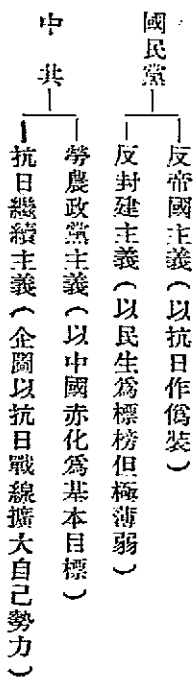 國民黨
反帝國主義（以抗日作僞裝）
反封建主義（以民生爲標榜但極薄弱）
中共
勞農政黨主義（以中國赤化爲基本目標）
抗日繼續主義（企圖以抗日戰線擴大自己勢力）